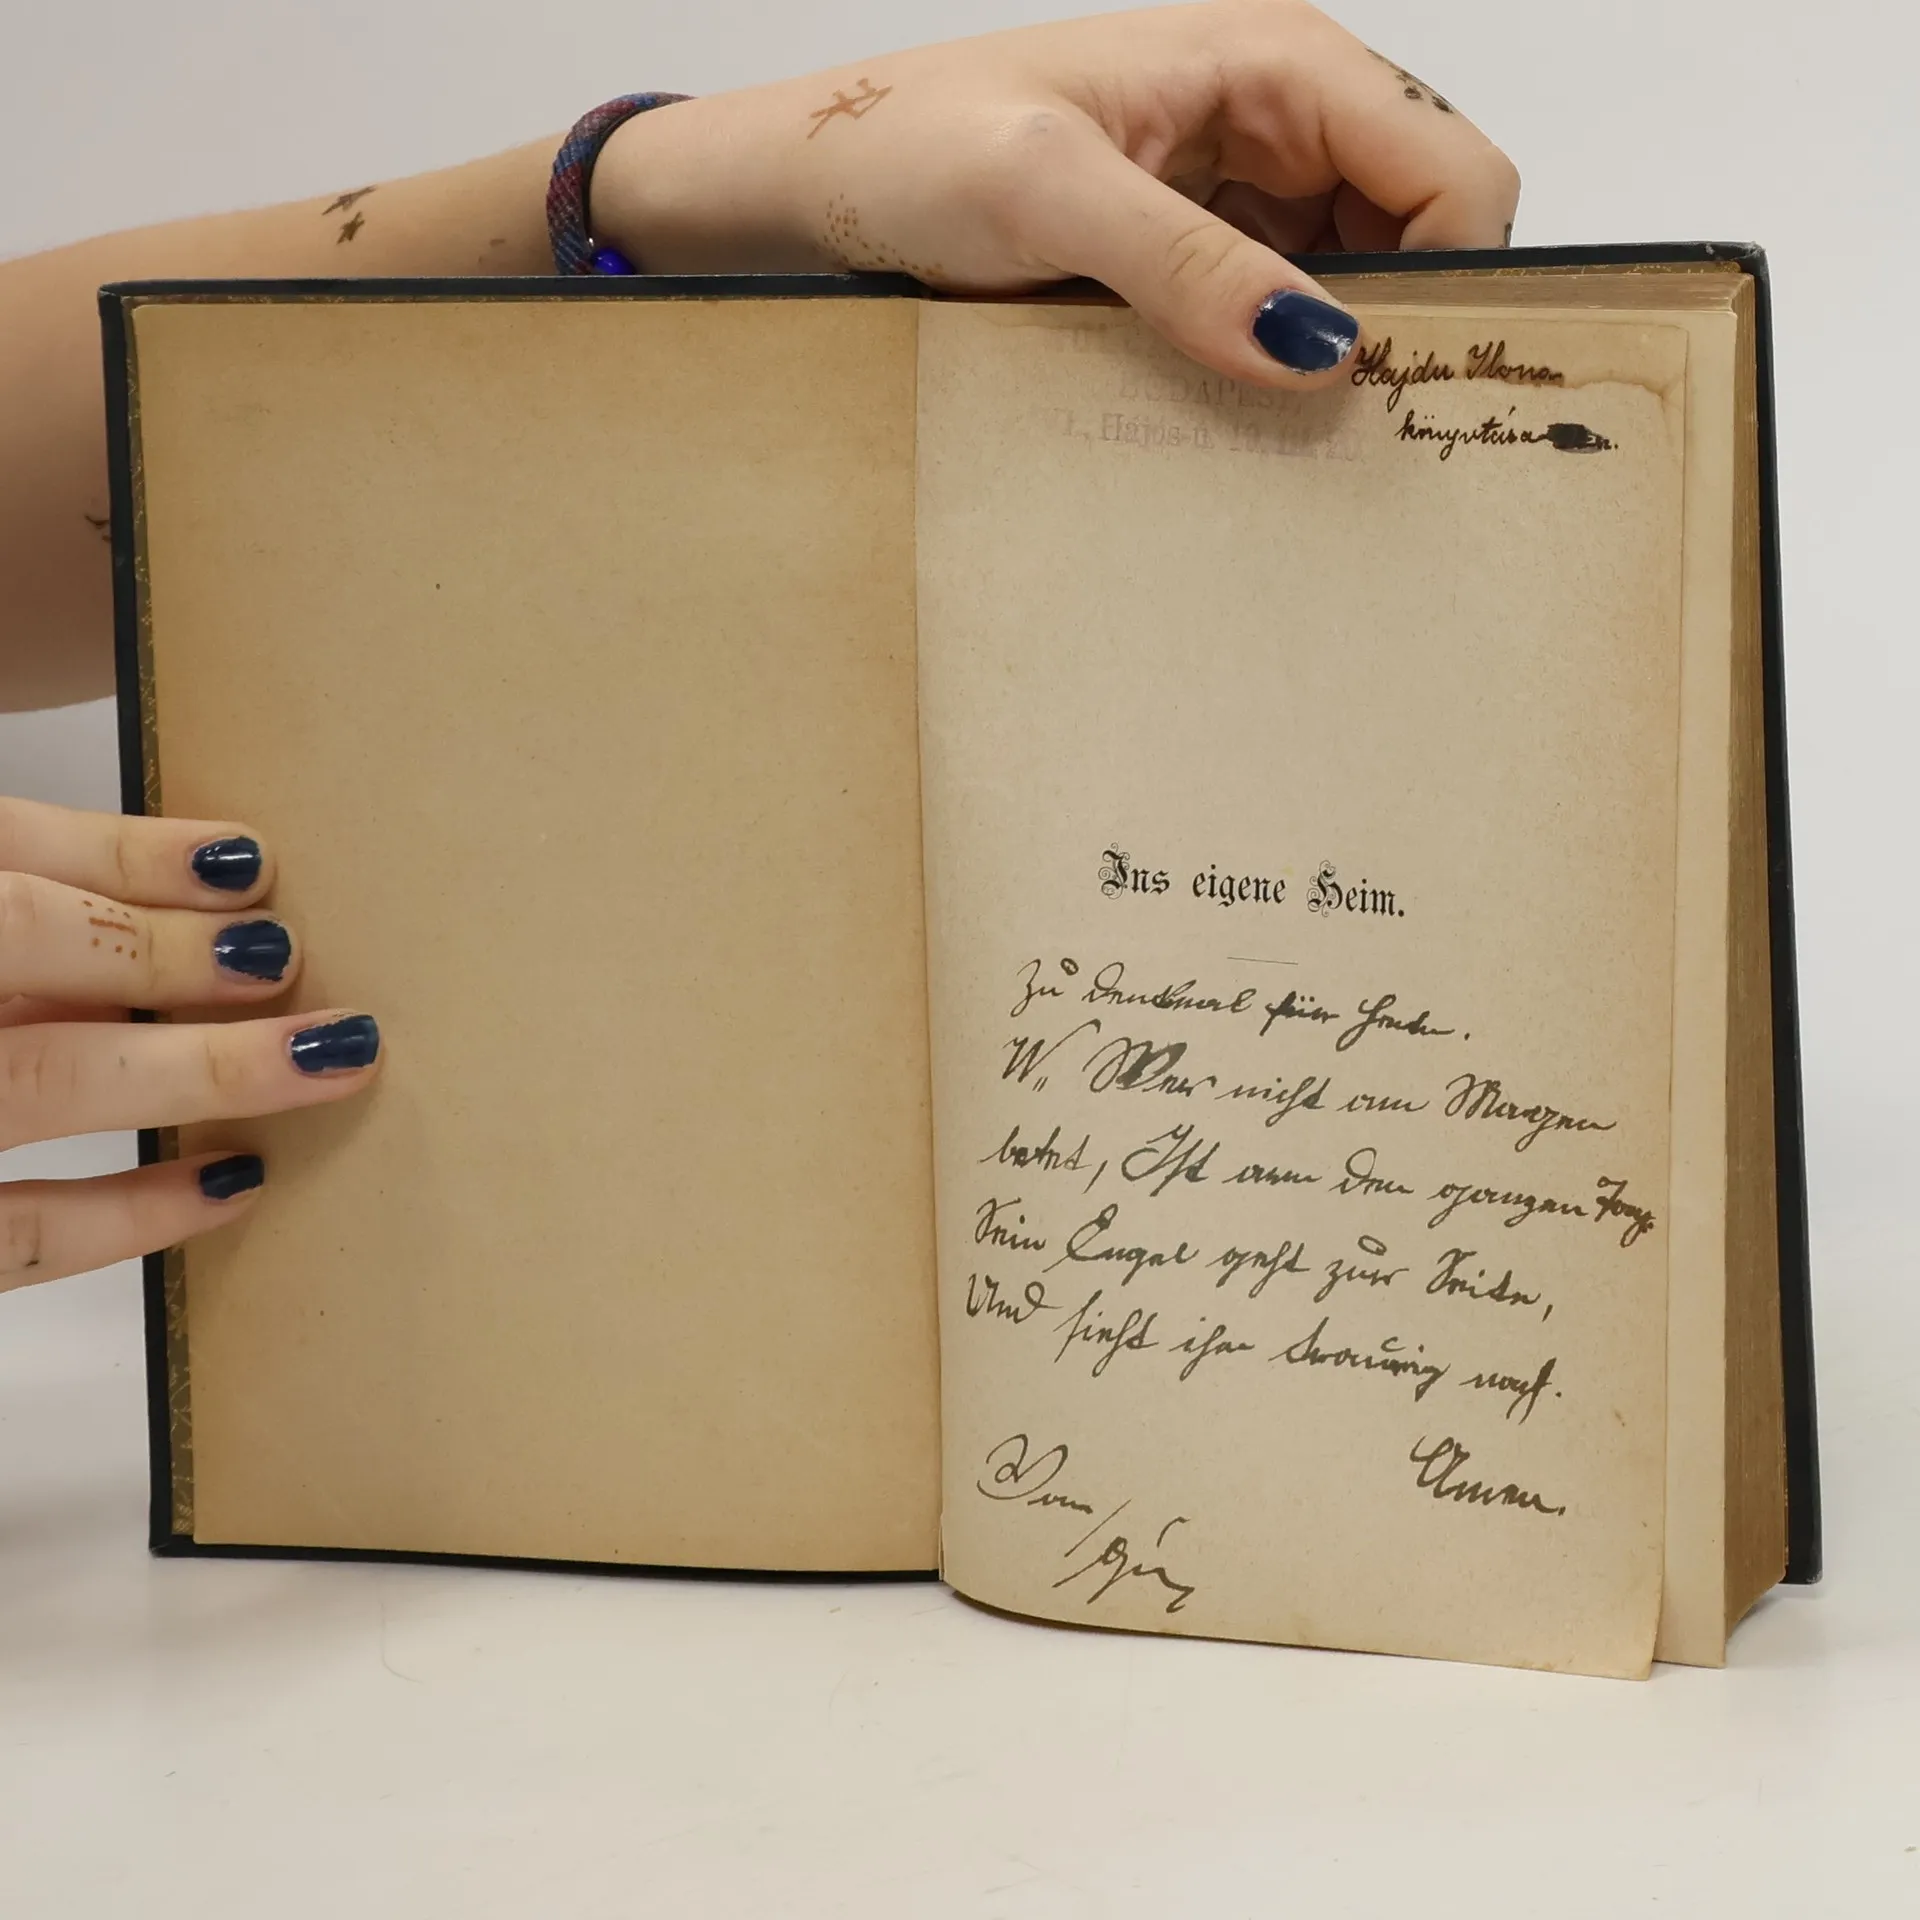 BUDAPEST
Hajós-u.
Hajdu Ilona
könyvtára
Ins eigene Heim.
Zu denkmal für
Wer nicht am Morgen
betet, Ist am den ganzen Tag.
Sein Engel geht zur Seite,
Und sieht ihn traurig nach.
Amen.
Von